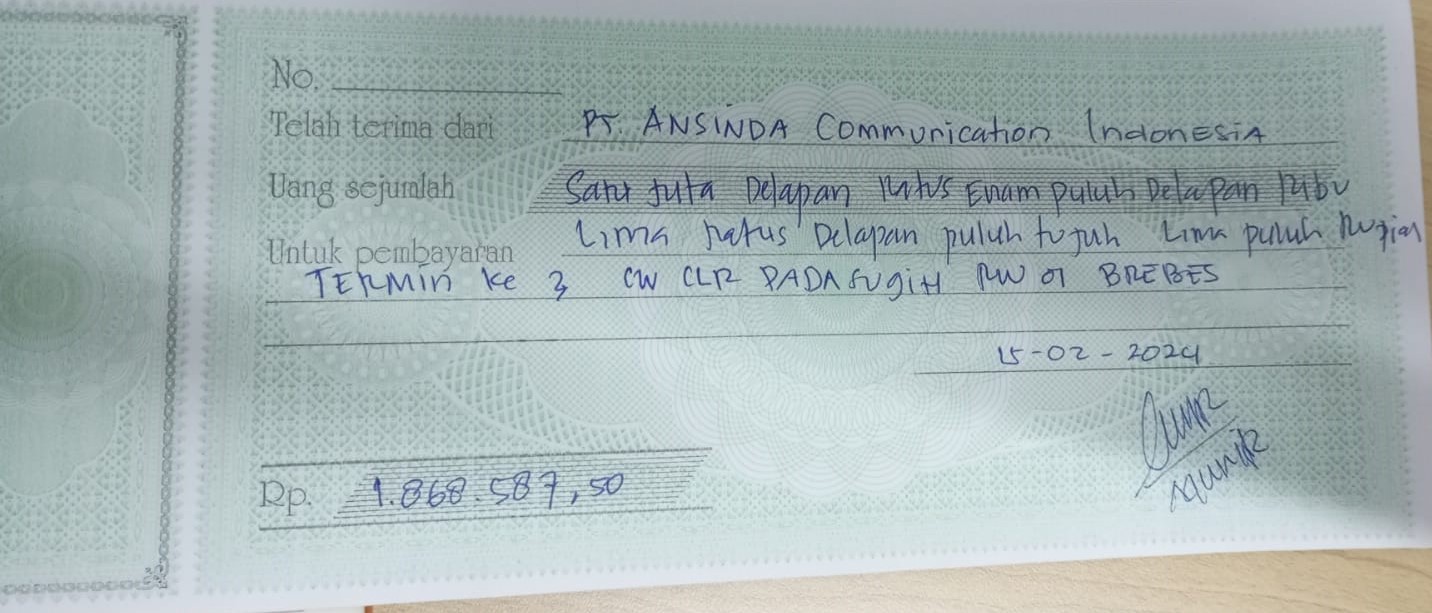 No.
Telah terima dari PT. ANSINDA Communication IndonESiA
Uang sejumlah Satu Juta Delapan ratus Enam puluh Delapan ribu
Untuk pembayaran Lima ratus Delapan puluh tujuh Lima puluh Rupiah
TERMin ke 3 CW CLR PADASUgiH RW 01 BREBES
15-02-2024
Rp. 1.868.587,50